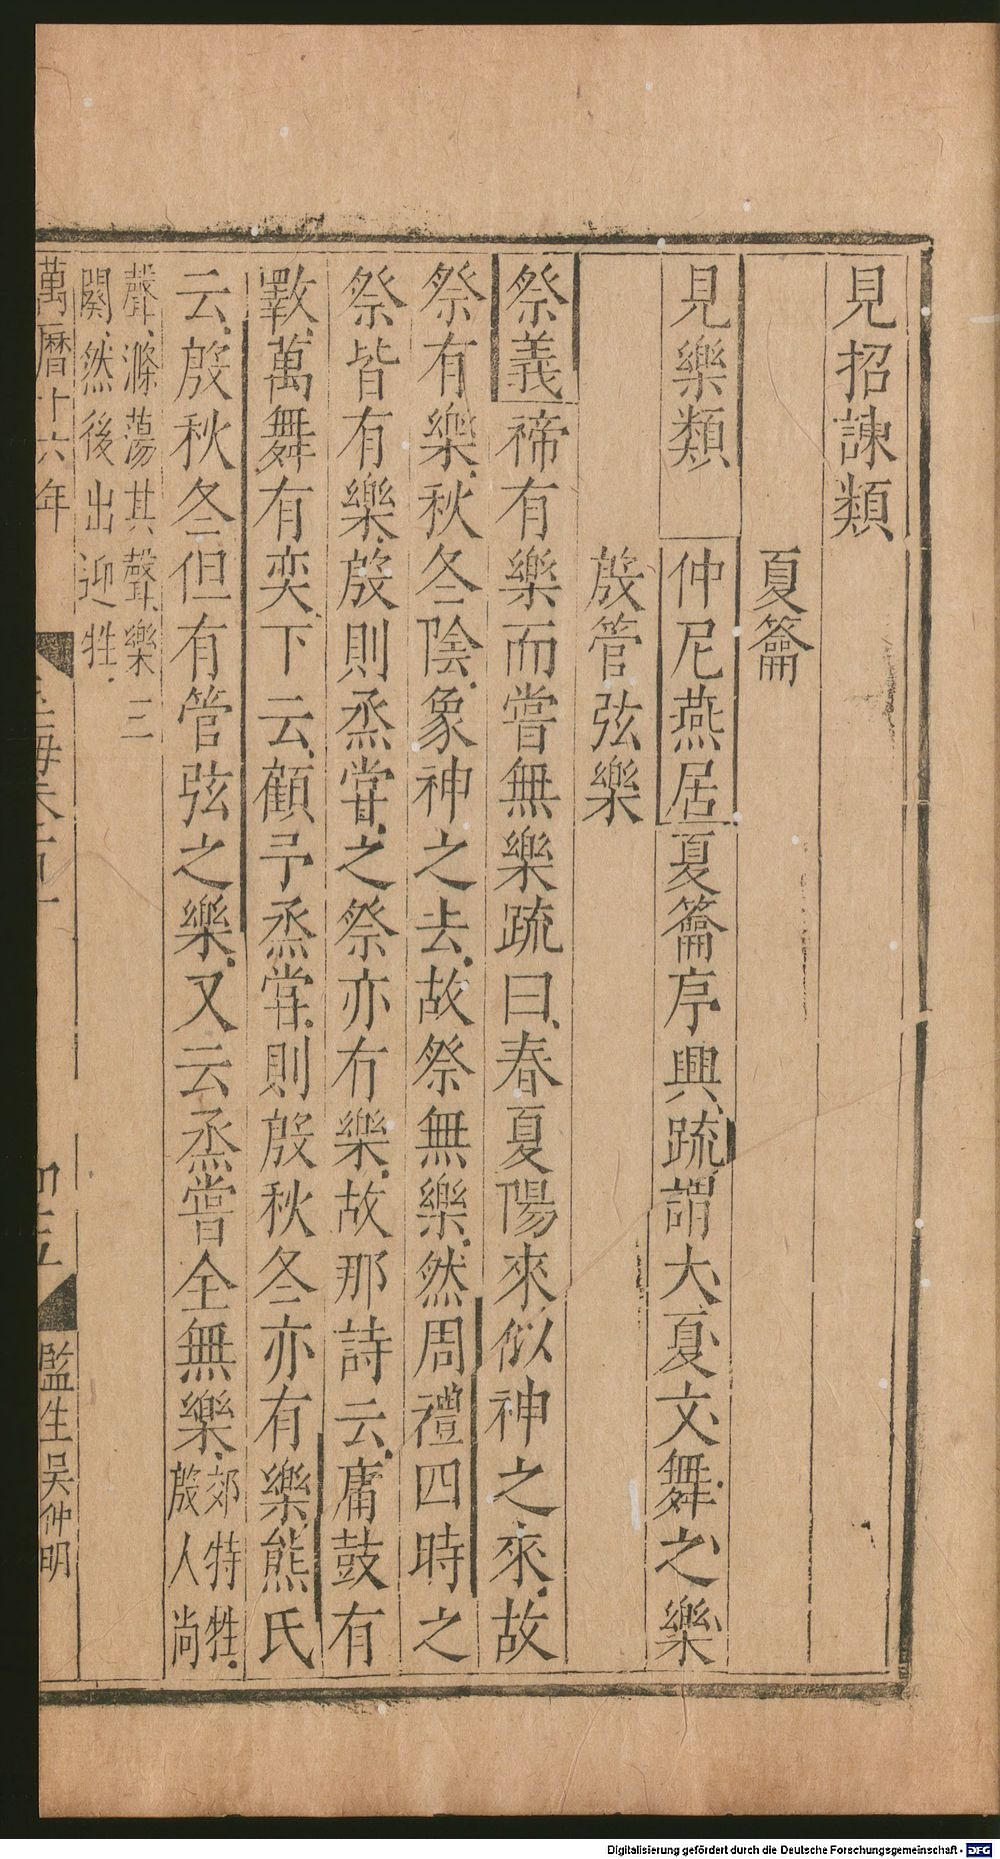 見招諫類
夏籥
見樂類 仲尼燕居夏籥序興疏謂大夏文舞之樂
殷管弦樂
祭義禘有樂而嘗無樂疏曰春夏陽來似神之來故
祭有樂秋冬陰象神之去故祭無樂然周禮四時之
祭皆有樂殷則烝嘗之祭亦有樂故那詩云庸鼓有
斁萬舞有奕下云顧予烝嘗則殷秋冬亦有樂熊氏
云殷秋冬但有管弦之樂又云烝嘗全無樂郊特牲殷人尚
聲滌蕩其聲樂三
闋然後出迎牲
萬曆十六年
玉海
監生吳仲明
Digitalisierung gefördert durch die Deutsche Forschungsgemeinschaft - DFG